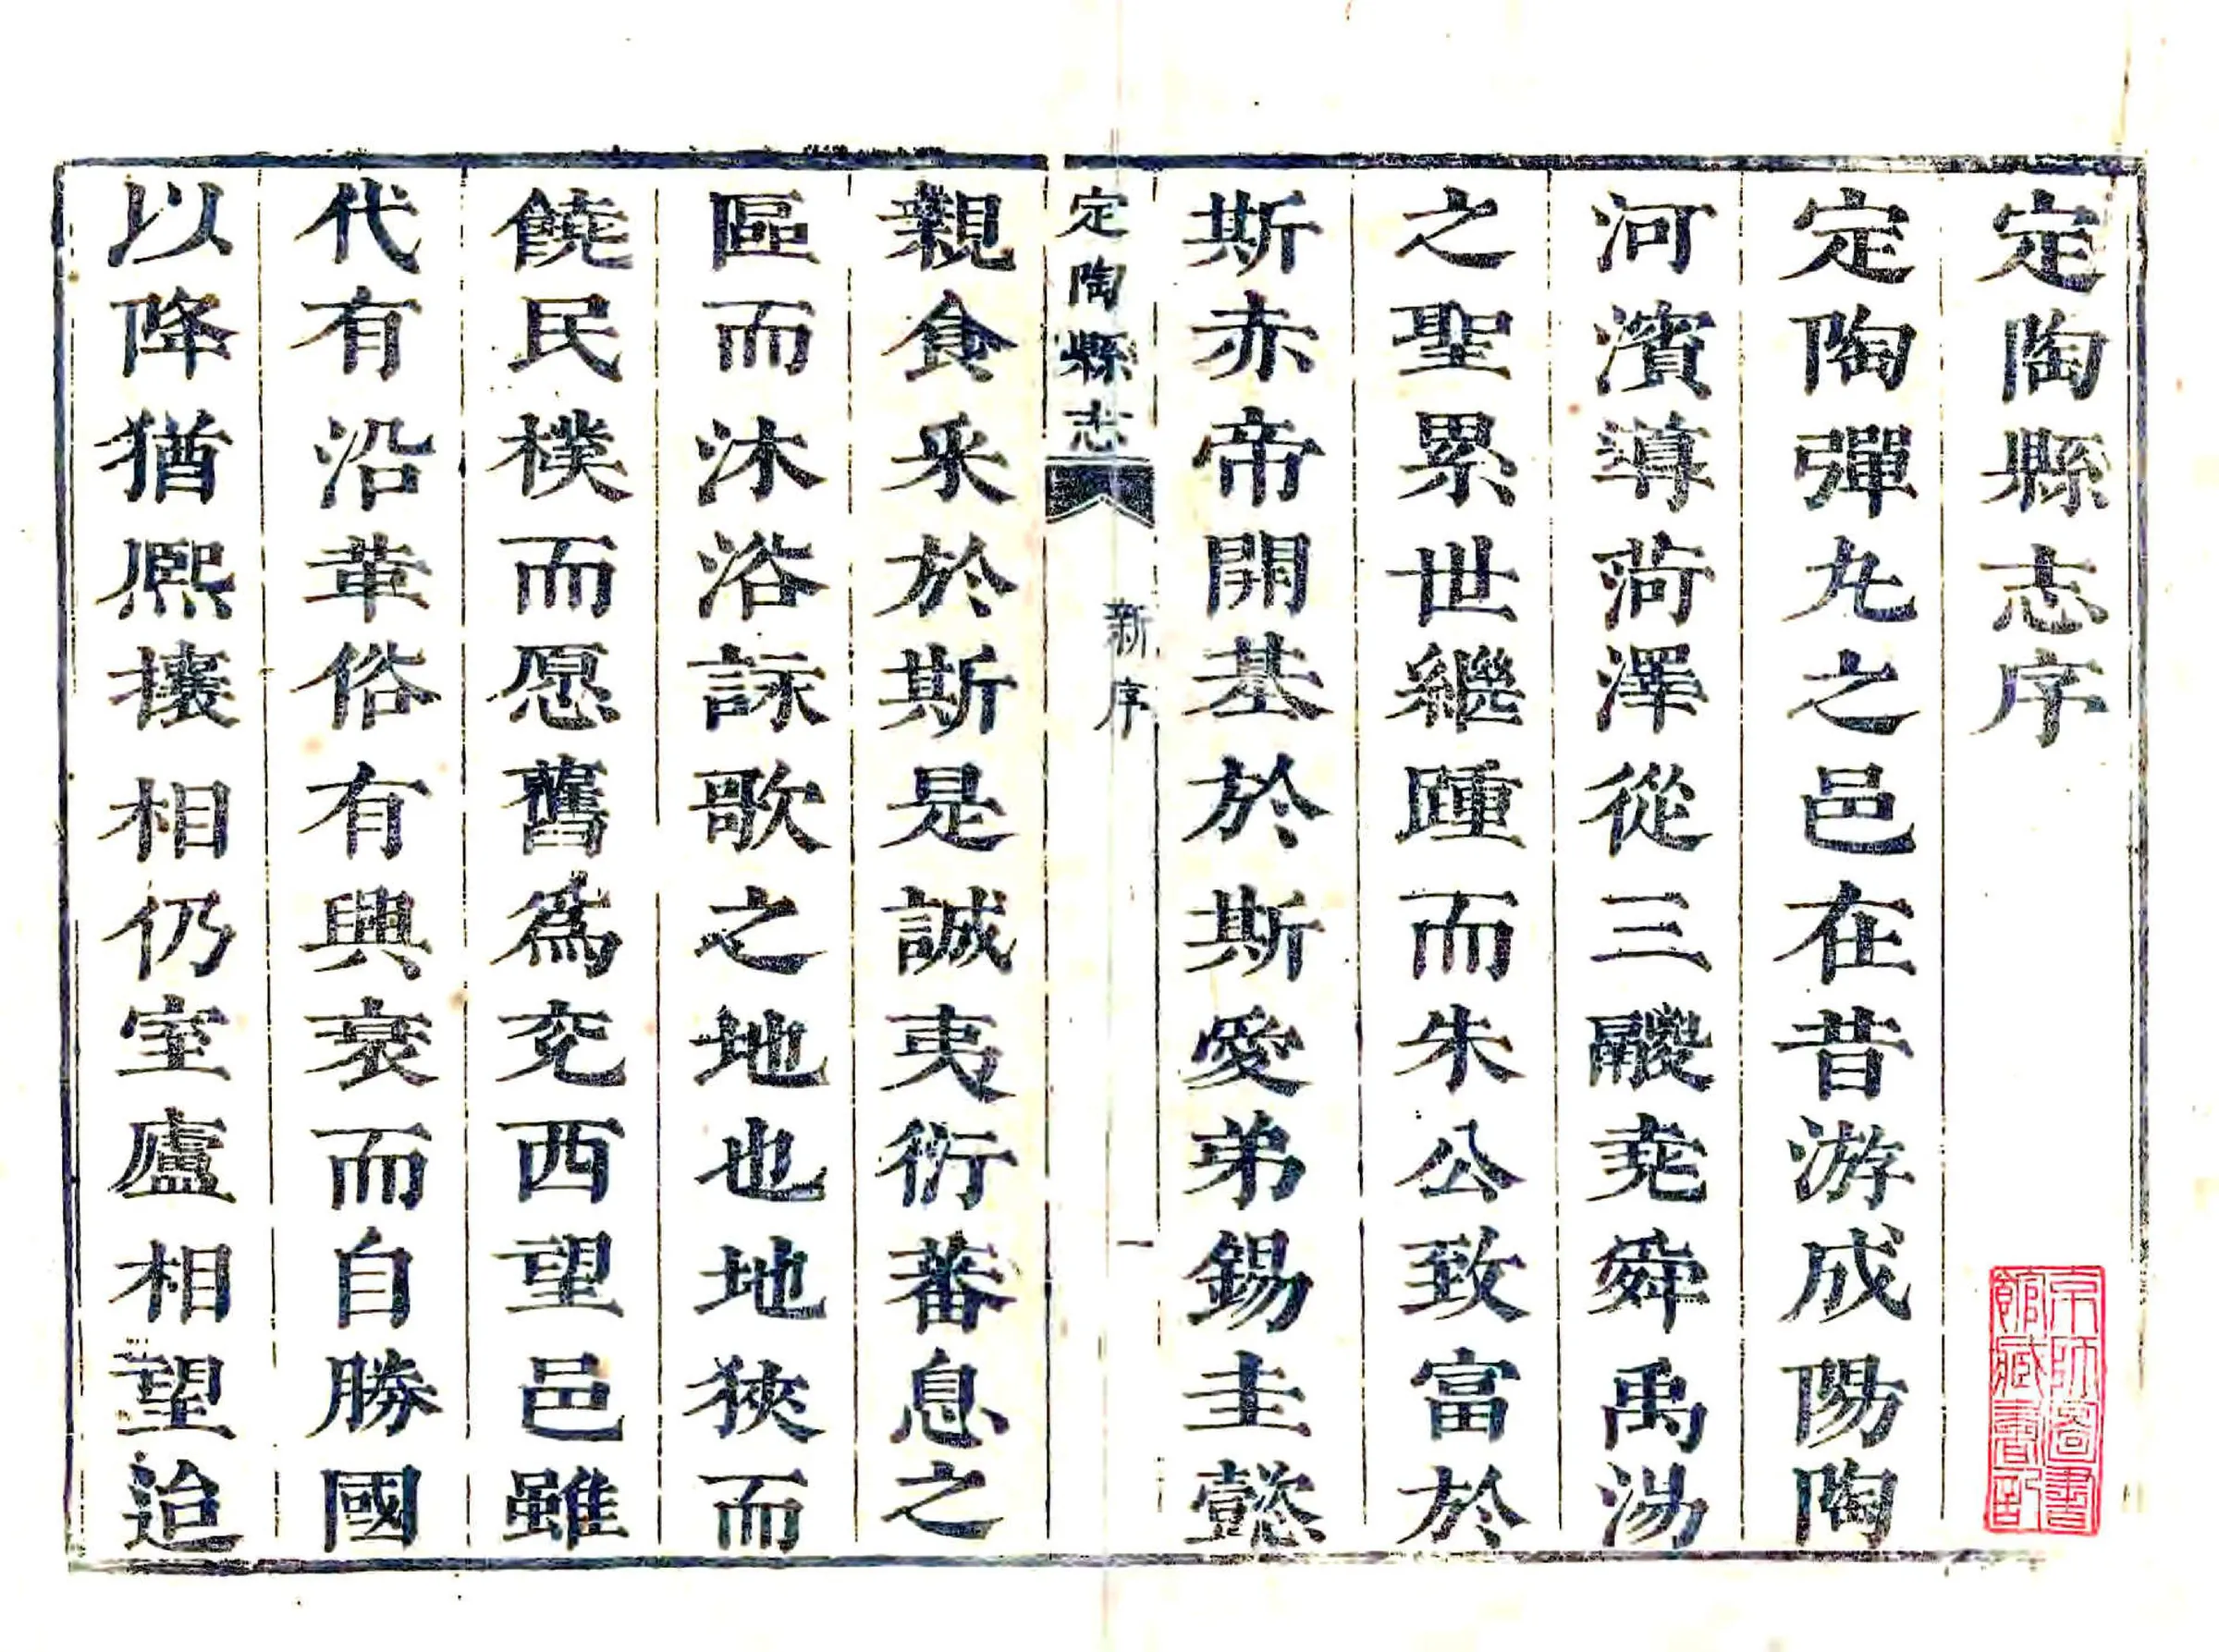 定陶縣志序
定陶彈丸之邑在昔游成陽陶
河濱導菏澤從三鬷堯舜禹湯
之聖累世繼踵而朱公致富於
斯赤帝開基於斯愛弟錫圭懿
定陶縣志 新序 一
親食采於斯是誠夷衍蕃息之
區而沐浴詠歌之地也地狹而
饒民樸而愿舊為兗西望邑雖
代有沿革俗有興衰而自勝國
以降猶熈攘相仍室廬相望迨
京師圖書
館藏書記